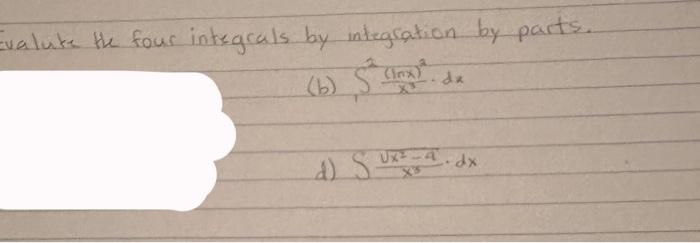 Evalute the four integrals by integration by parts.
(b) ∫₁² (lnx)²/x³ . dx
d) ∫ √x²-4/x³ . dx